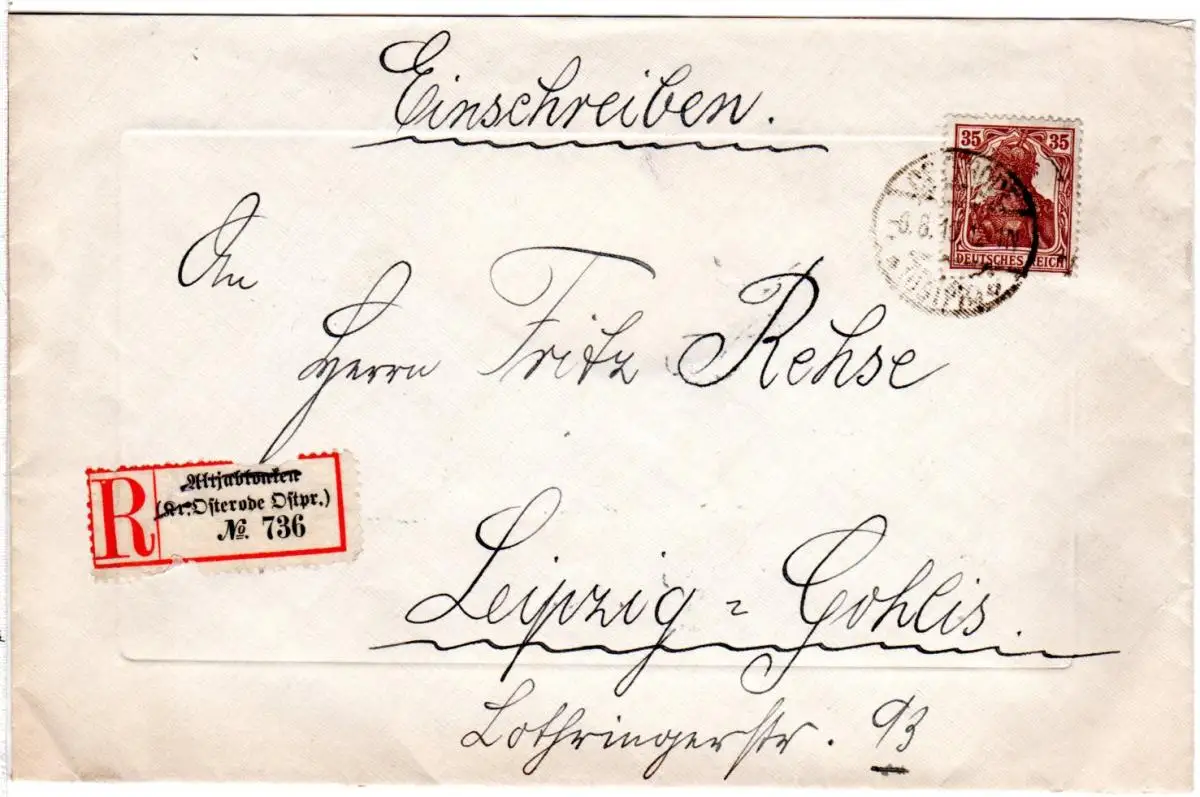 Einschreiben.
35 35
DEUTSCHES REICH
An
Herrn Fritz Rehse
R
Altjablonken
(Kr. Osterode Ostpr.)
No. 736
Leipzig = Gohlis.
Lothringerstr. 93